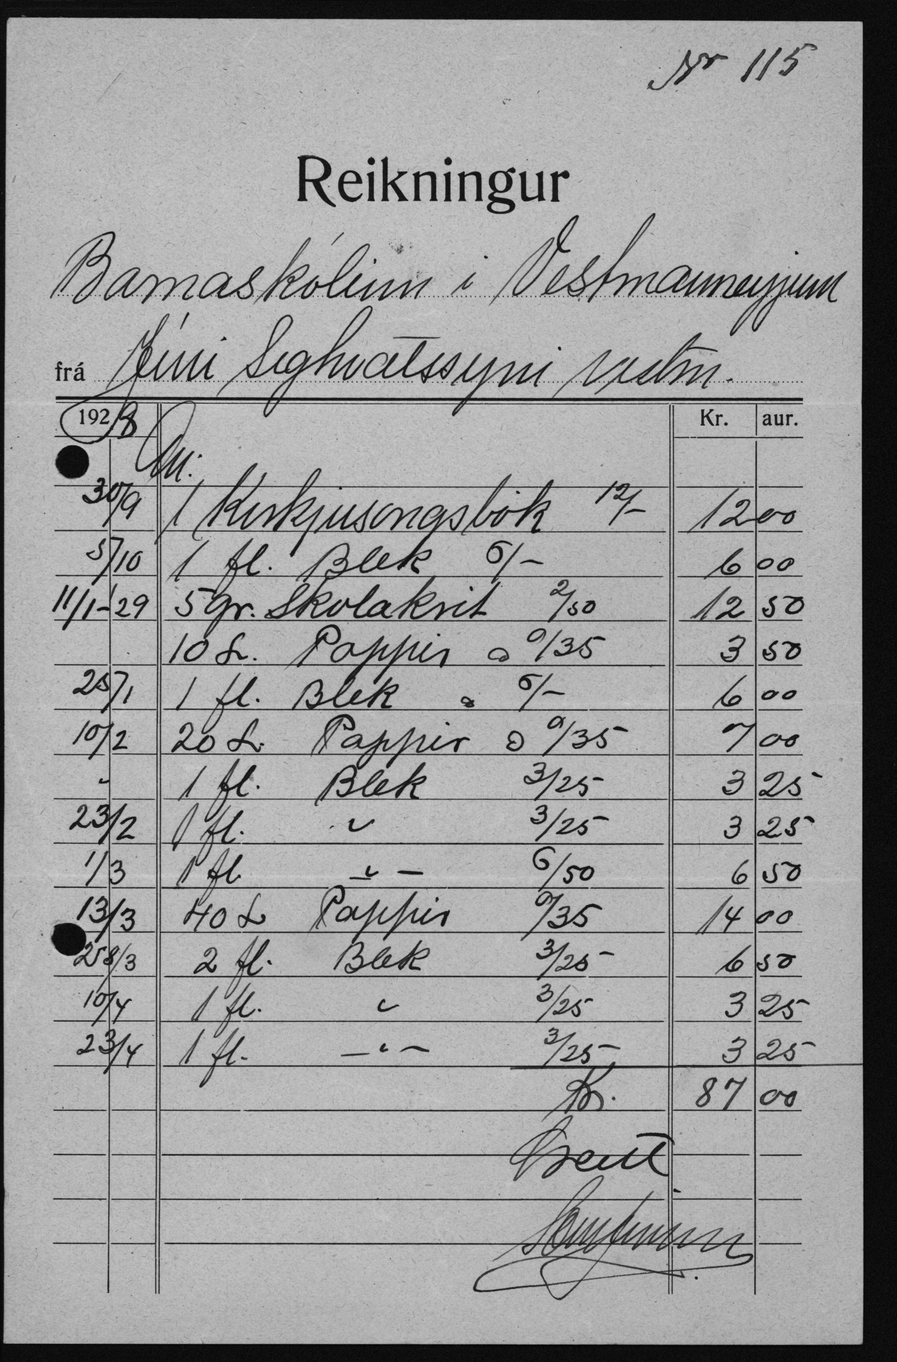 Nr 115
Reikningur
Barnaskólinn í Vestmannaeyjum
frá Jóni Sighvatssyni Vestm.
1928 Kr. aur.
30/9 1 Kirkjusöngsbók 12/- 12 00
5/10 1 fl. Blek 6/- 6 00
11/1-29 5 gr. Skolakrit 2/50 12 50
10 L. Pappir a 0/35 3 50
25/1 1 fl. Blek a 6/- 6 00
10/2 20 L. Pappir a 0/35 7 00
" 1 fl. Blek 3/25 3 25
23/2 1 fl. " 3/25 3 25
1/3 1 fl. -"- 6/50 6 50
13/3 40 L Pappir 0/35 14 00
2 fl. Blek 3/25 6 50
10/4 1 fl. " 3/25 3 25
23/4 1 fl. -"- 3/25 3 25
Kr. 87 00